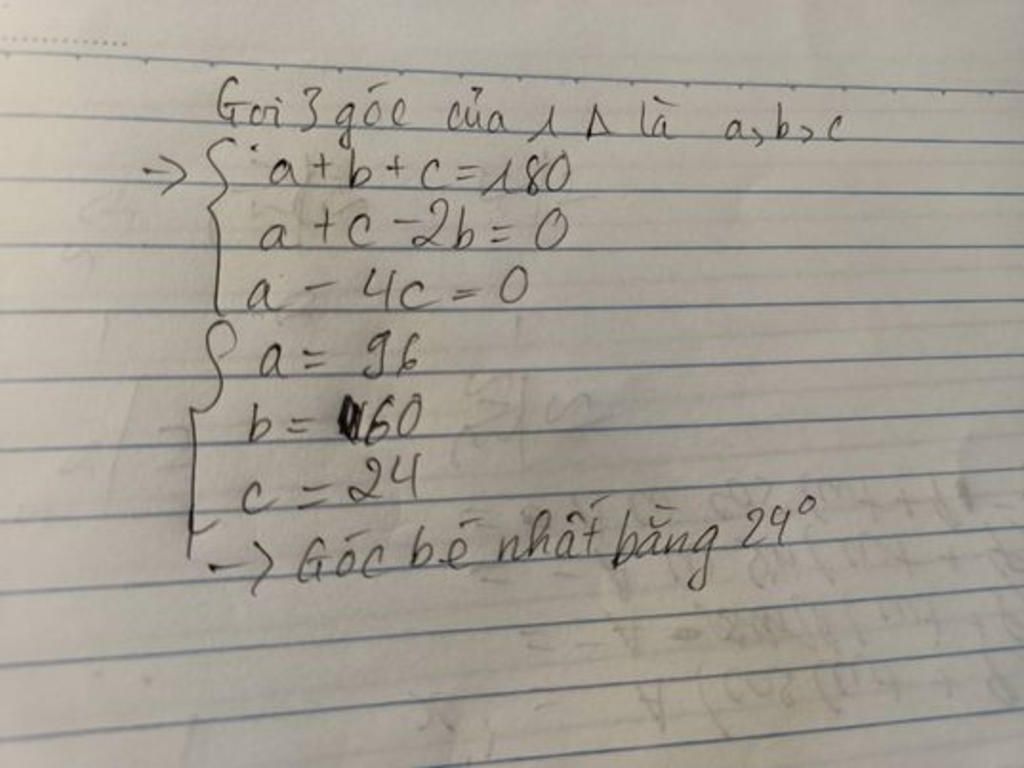 Gọi 3 góc của 1 Δ là a, b, c
→ { a + b + c = 180
a + c - 2b = 0
a - 4c = 0
{ a = 96
b = 60
c = 24
→ Góc bé nhất bằng 24°